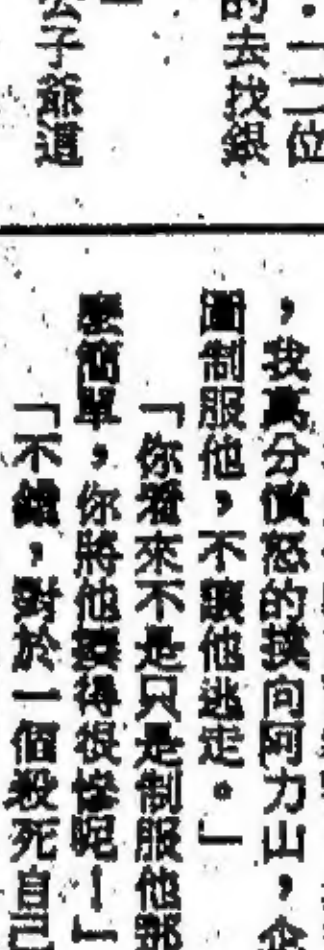 ．一二位
的去找銀
公子爺這
，我萬分憤怒的撲向阿力山，企
圖制服他，不讓他逃走。」
「你看來不是只是制服他那
麼簡單，你將他揍得很慘呢！」
「不錯，對於一個殺死自己